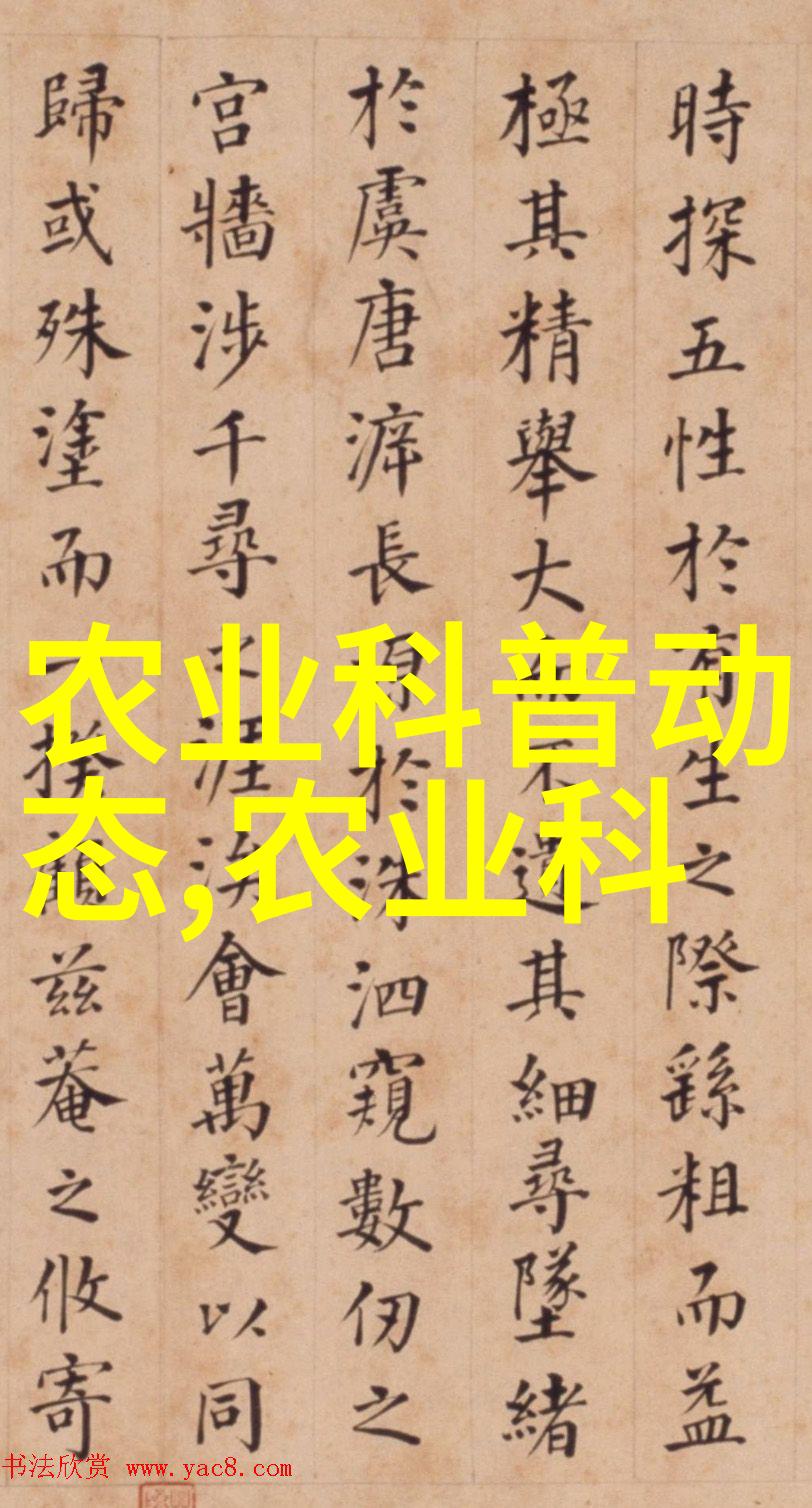 時探五性於有生之際繇粗而益
極其精舉大而不遺其細尋墜緒
於虞唐滹長源於洙泗窺數仞之
宮牆涉千尋之涯涘會萬變以同
歸或殊塗而一揆顧兹菴之攸寄
农业科普动
态,农业科
书法欣赏 www.yac8.com